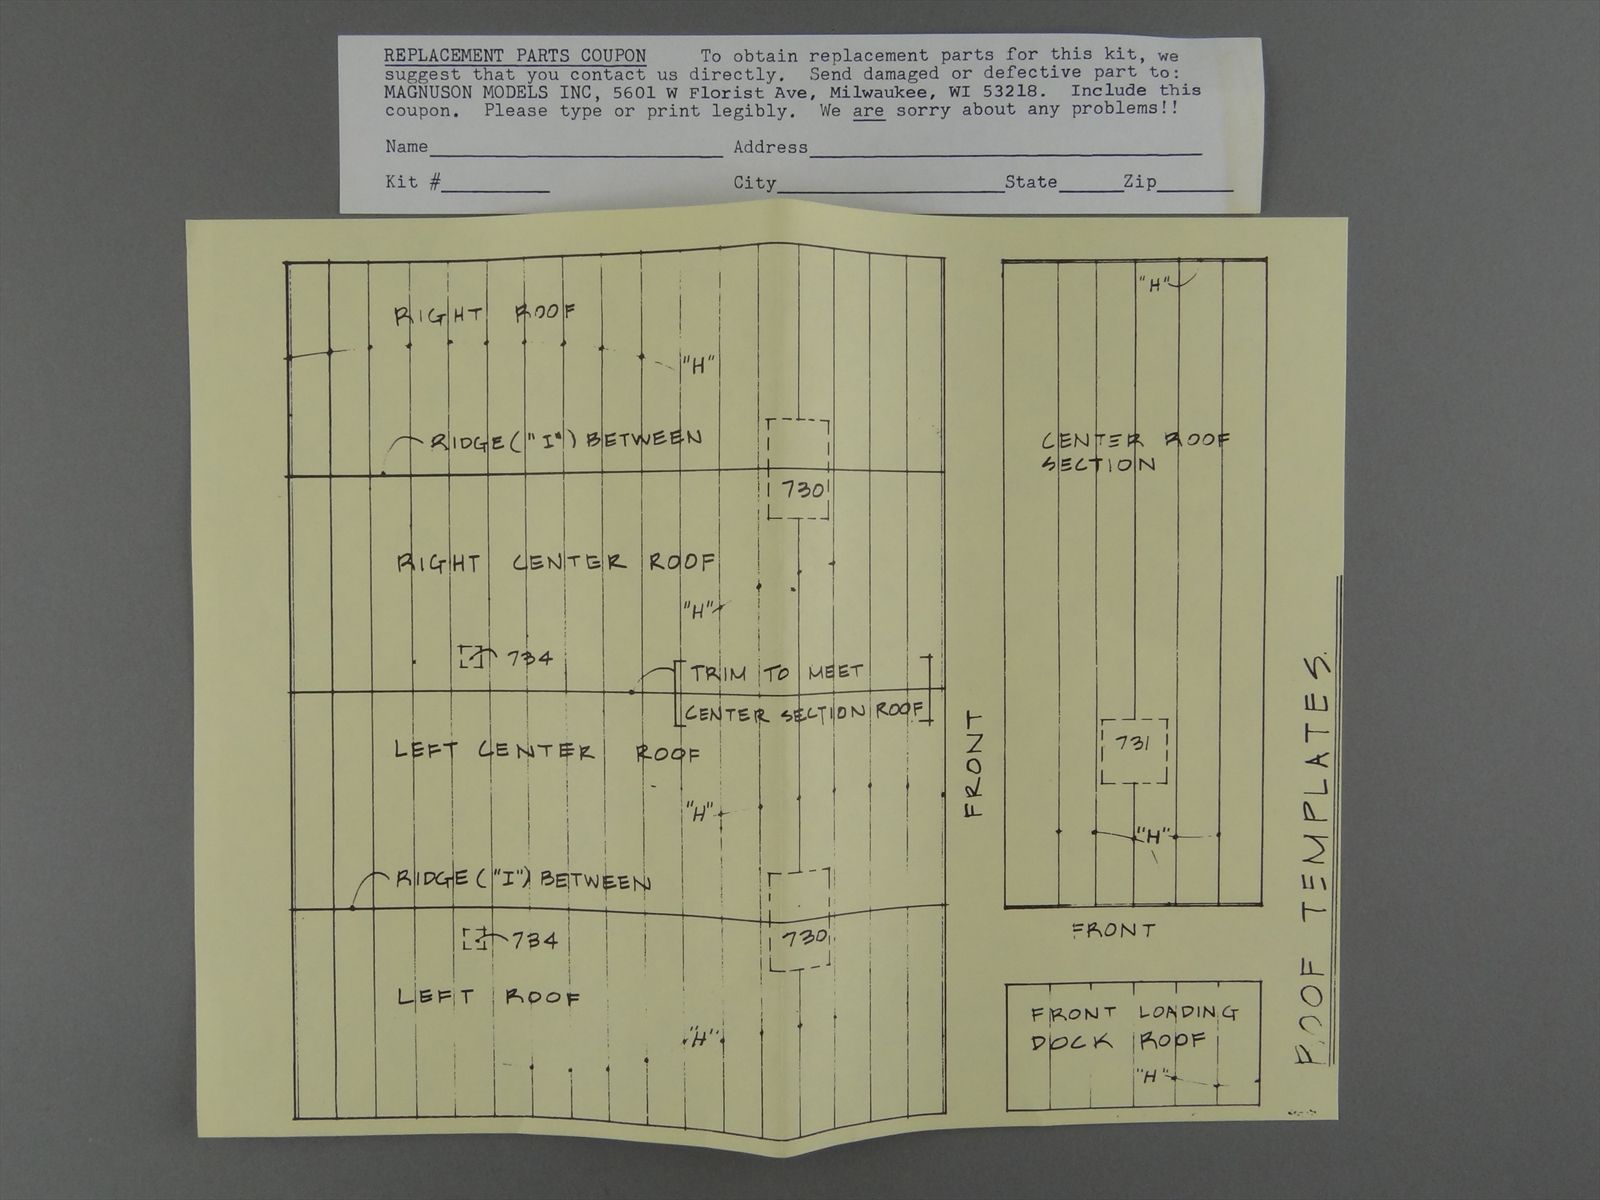 REPLACEMENT PARTS COUPON To obtain replacement parts for this kit, we
suggest that you contact us directly. Send damaged or defective part to:
MAGNUSON MODELS INC, 5601 W Florist Ave, Milwaukee, WI 53218. Include this
coupon. Please type or print legibly. We are sorry about any problems!!
Name Address
Kit # City State Zip
RIGHT ROOF
"H"
RIDGE ("I") BETWEEN
730
RIGHT CENTER ROOF
"H"
734
TRIM TO MEET
CENTER SECTION ROOF
LEFT CENTER ROOF
"H"
RIDGE ("I") BETWEEN
734
730
LEFT ROOF
"H"
FRONT
"H"
CENTER ROOF
SECTION
731
"H"
FRONT
FRONT LOADING
DOCK ROOF
"H"
ROOF TEMPLATES